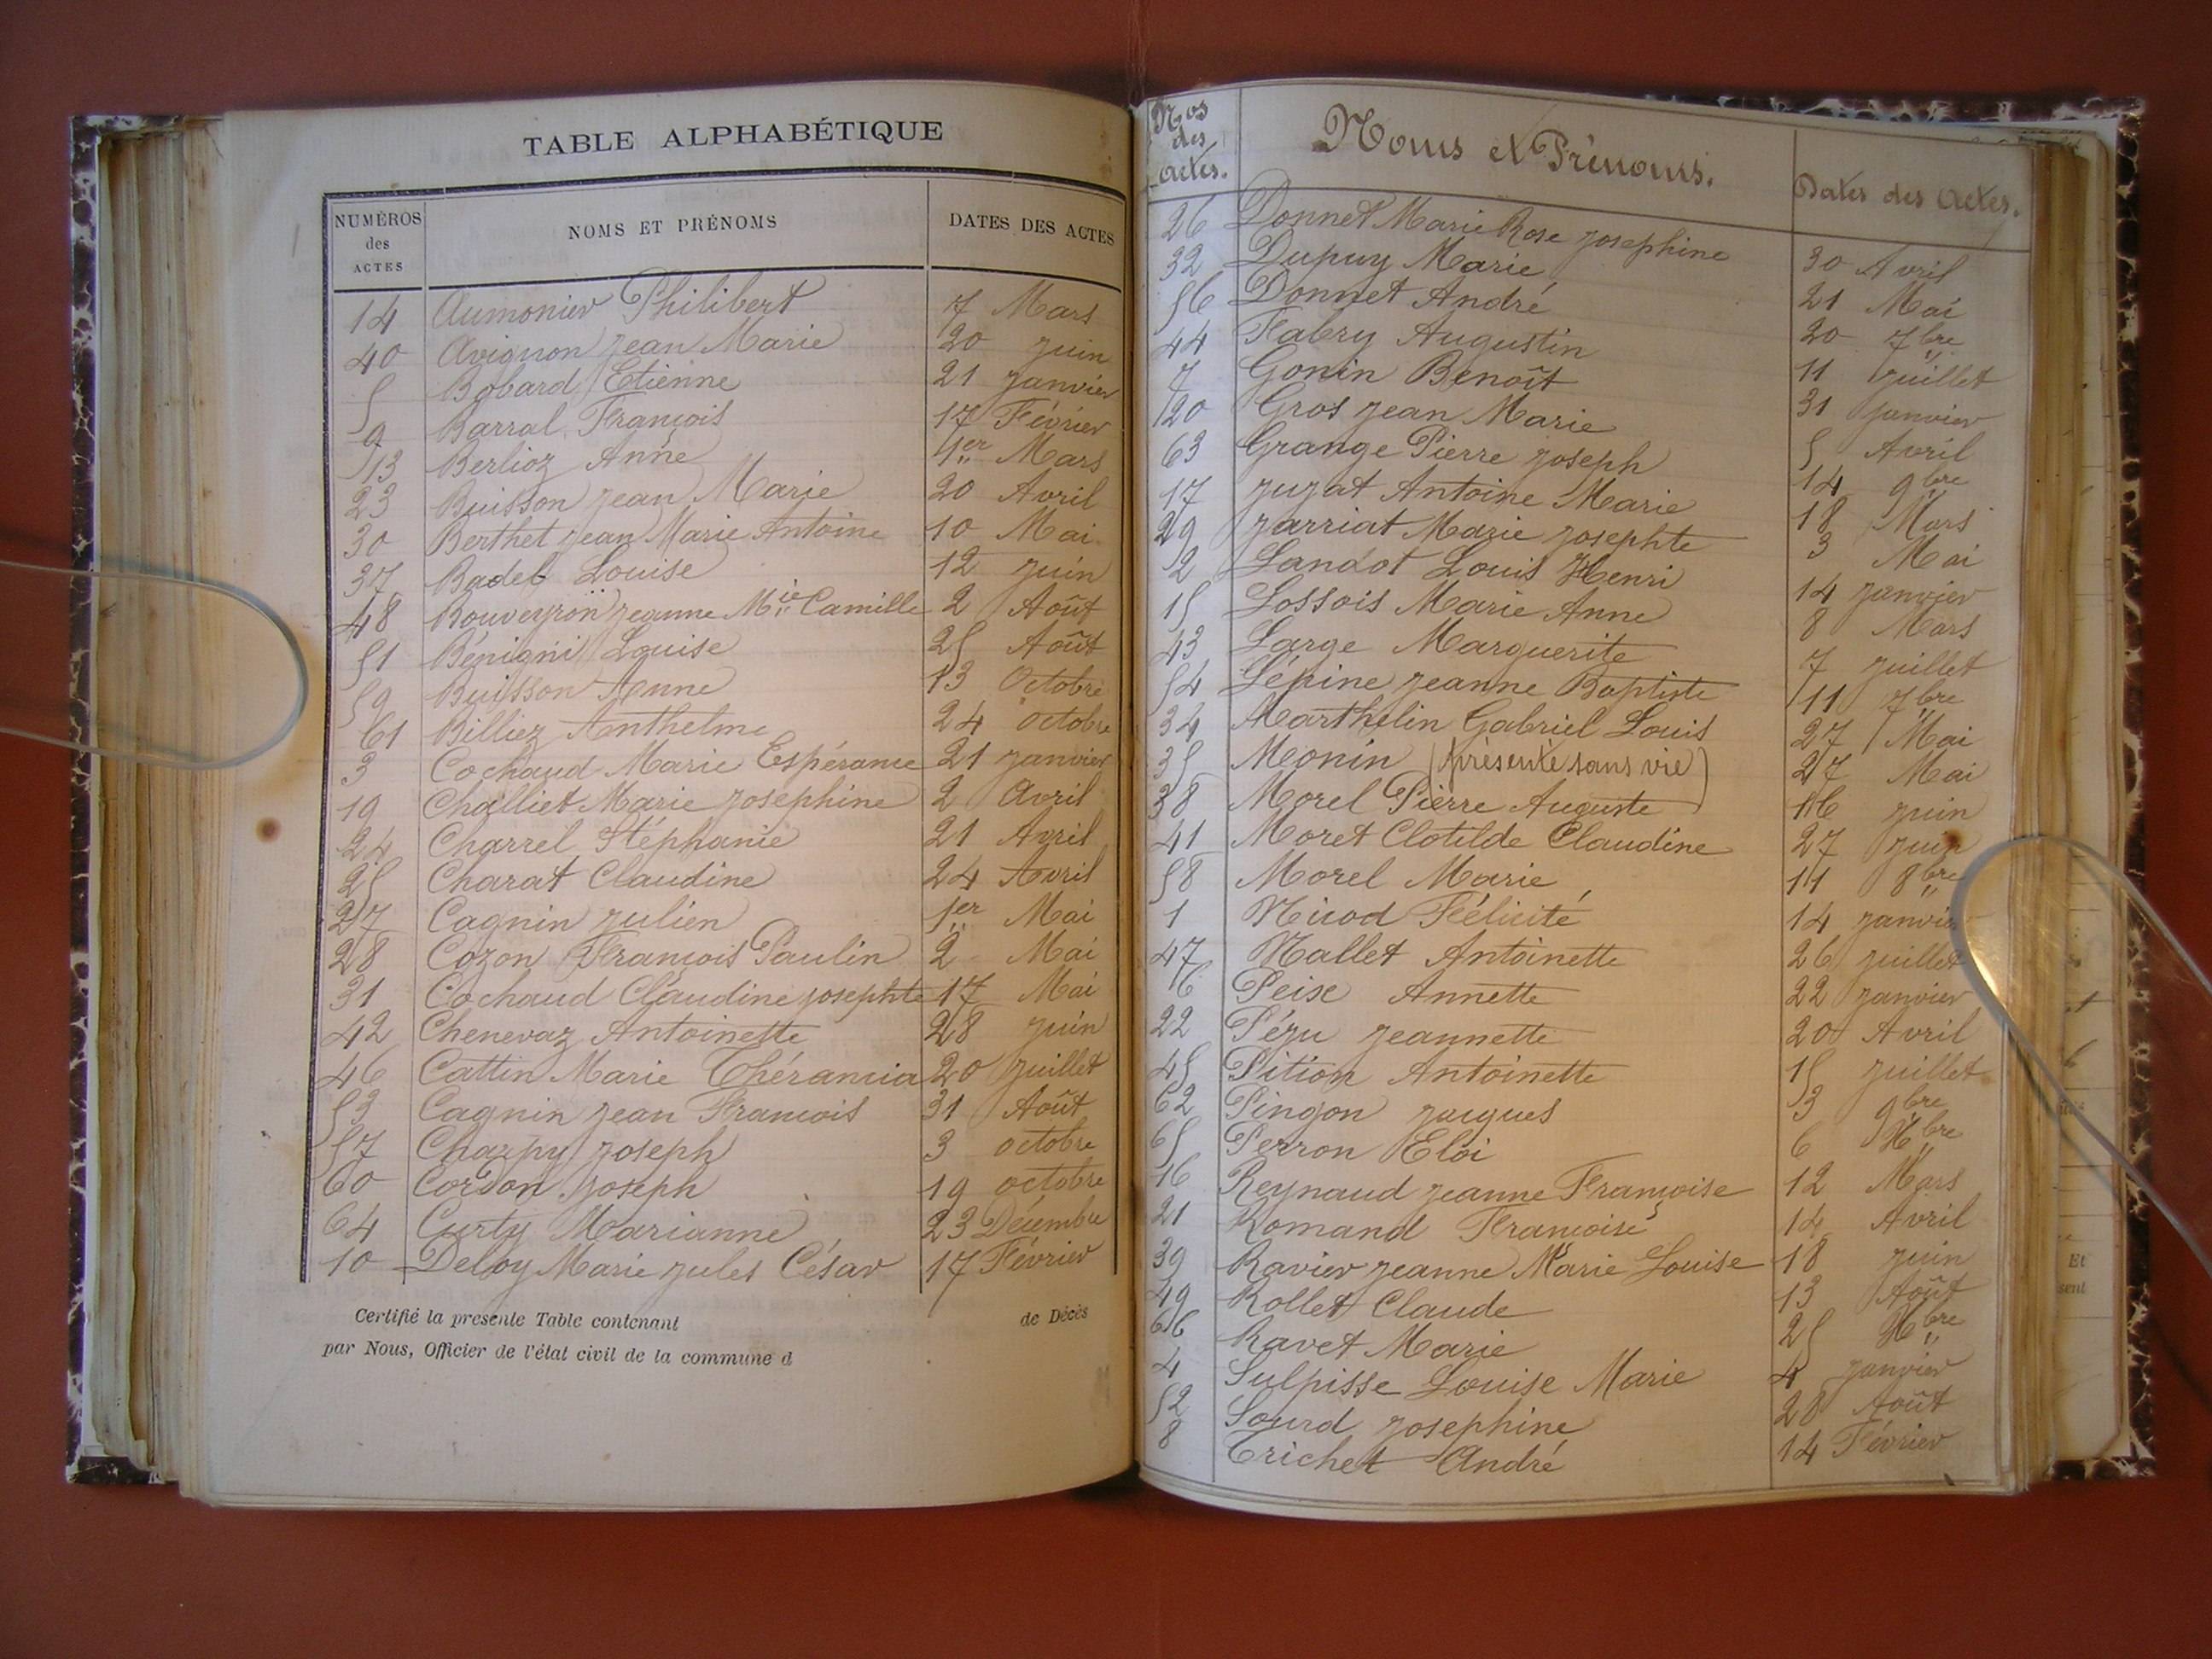 TABLE ALPHABÉTIQUE
NUMÉROS des ACTES NOMS ET PRÉNOMS DATES DES ACTES
14 Aumonier Philibert 7 Mars
40 Avignon Jean Marie 20 Juin
5 Bobard Etienne 21 Janvier
9 Barral François 17 Février
13 Berlioz Anne 1er Mars
23 Buisson Jean Marie 20 Avril
30 Berthet Jean Marie Antoine 10 Mai
37 Badel Louise 12 Juin
48 Bouveyron Jeanne Mie Camille 2 Août
51 Bénigni Louise 25 Août
59 Buisson Anne 13 Octobre
61 Billiez Anthelme 24 Octobre
3 Cochaud Marie Espérance 21 Janvier
19 Challiet Marie Josephine 2 Avril
24 Charrel Stéphanie 21 Avril
25 Charat Claudine 24 Avril
27 Cagnin Julien 1er Mai
28 Cozon François Paulin 2 Mai
31 Cochaud Claudine Josephte 17 Mai
42 Chenevaz Antoinette 28 Juin
46 Cattin Marie Thérancia 20 Juillet
53 Cagnin Jean François 31 Août
57 Charpy Joseph 3 Octobre
60 Cordon Joseph 19 octobre
64 Curty Marianne 23 Décembre
10 Deloy Marie Jules César 17 Février
Certifié la présente Table contenant de Décès
par Nous, Officier de l'état civil de la commune d
Nos des Actes. Noms et Prénoms. Dates des Actes.
26 Donnet Marie Rose Josephine 30 Avril
32 Dupuy Marie 21 Mai
56 Donnet André 20 7bre
44 Fabry Augustin 11 Juillet
7 Gonin Benoît 31 Janvier
20 Gros Jean Marie 5 Avril
63 Grange Pierre Joseph 14 9bre
17 Juzat Antoine Marie 18 Mars
29 Jarriat Marie Josephte 3 Mai
2 Landot Louis Henri 14 Janvier
15 Lossois Marie Anne 8 Mars
43 Large Marguerite 7 Juillet
54 Lépine Jeanne Baptiste 11 7bre
34 Marthelin Gabriel Louis 27 Mai
35 Monin (présenté sans vie) 27 Mai
38 Morel Pierre Auguste 16 Juin
41 Moret Clotilde Claudine 27 Juin
58 Morel Marie 11 8bre
1 Nicod Félicité 14 Janvier
47 Nallet Antoinette 26 Juillet
6 Peise Annette 22 Janvier
22 Pézu Jeannette 20 Avril
45 Pition Antoinette 15 Juillet
62 Pingon Jacques 3 9bre
65 Perron Eloi 6 Xbre
16 Reynaud Jeanne Françoise 12 Mars
21 Romand Françoise 14 Avril
39 Ravier Jeanne Marie Louise 18 Juin
49 Rollet Claude 13 Août
66 Ravet Marie 25 Xbre
4 Sulpisse Louise Marie 4 Janvier
52 Sourd Josephine 28 Août
8 Trichet André 14 Février